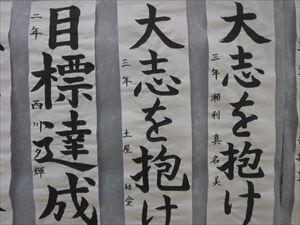 大志を抱け
三年 瀬利真名美
大志を抱け
三年 土屋
目標達成
二年 西川夕輝